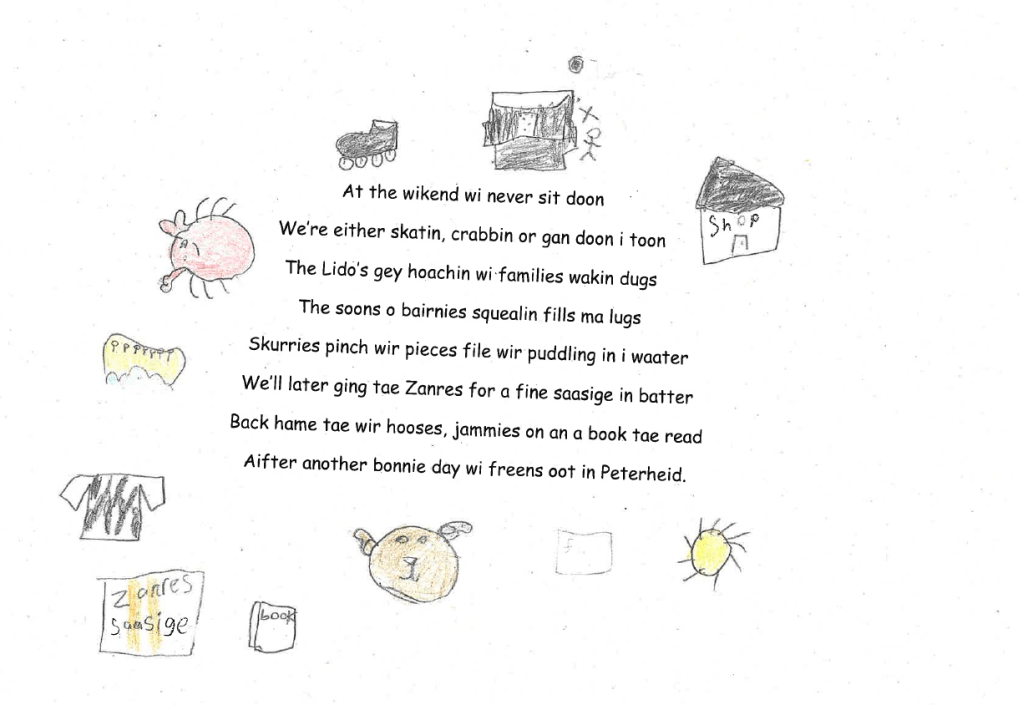 Shop
At the wikend wi never sit doon
We're either skatin, crabbin or gan doon i toon
The Lido's gey hoachin wi families wakin dugs
The soons o bairnies squealin fills ma lugs
Skurries pinch wir pieces file wir puddling in i waater
We'll later ging tae Zanres for a fine saasige in batter
Back hame tae wir hooses, jammies on an a book tae read
Aifter another bonnie day wi freens oot in Peterheid.
Zanres
Saasige
book